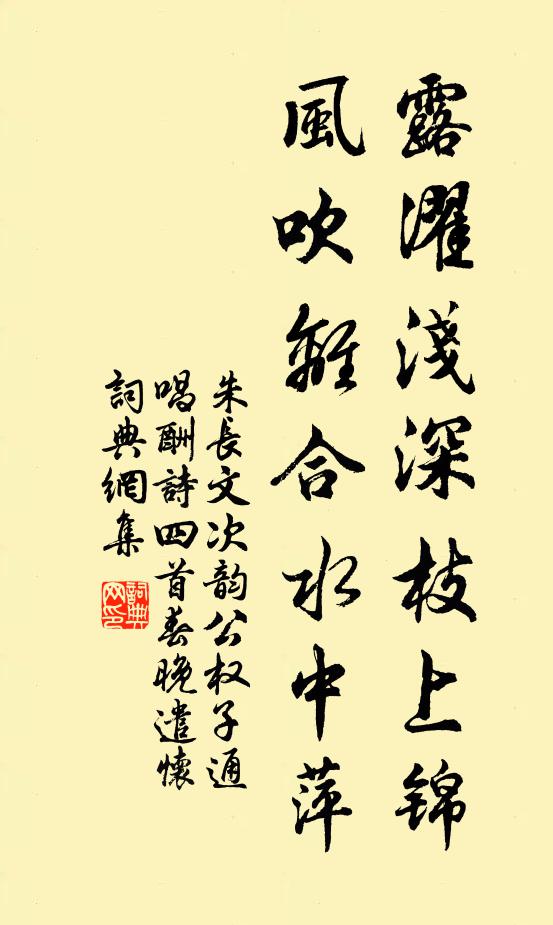 露濯淺深枝上錦
風吹離合水中萍
朱長文次韵公权子通
唱酬詩四首春晚遣懷
詞典網集
詞典
网印